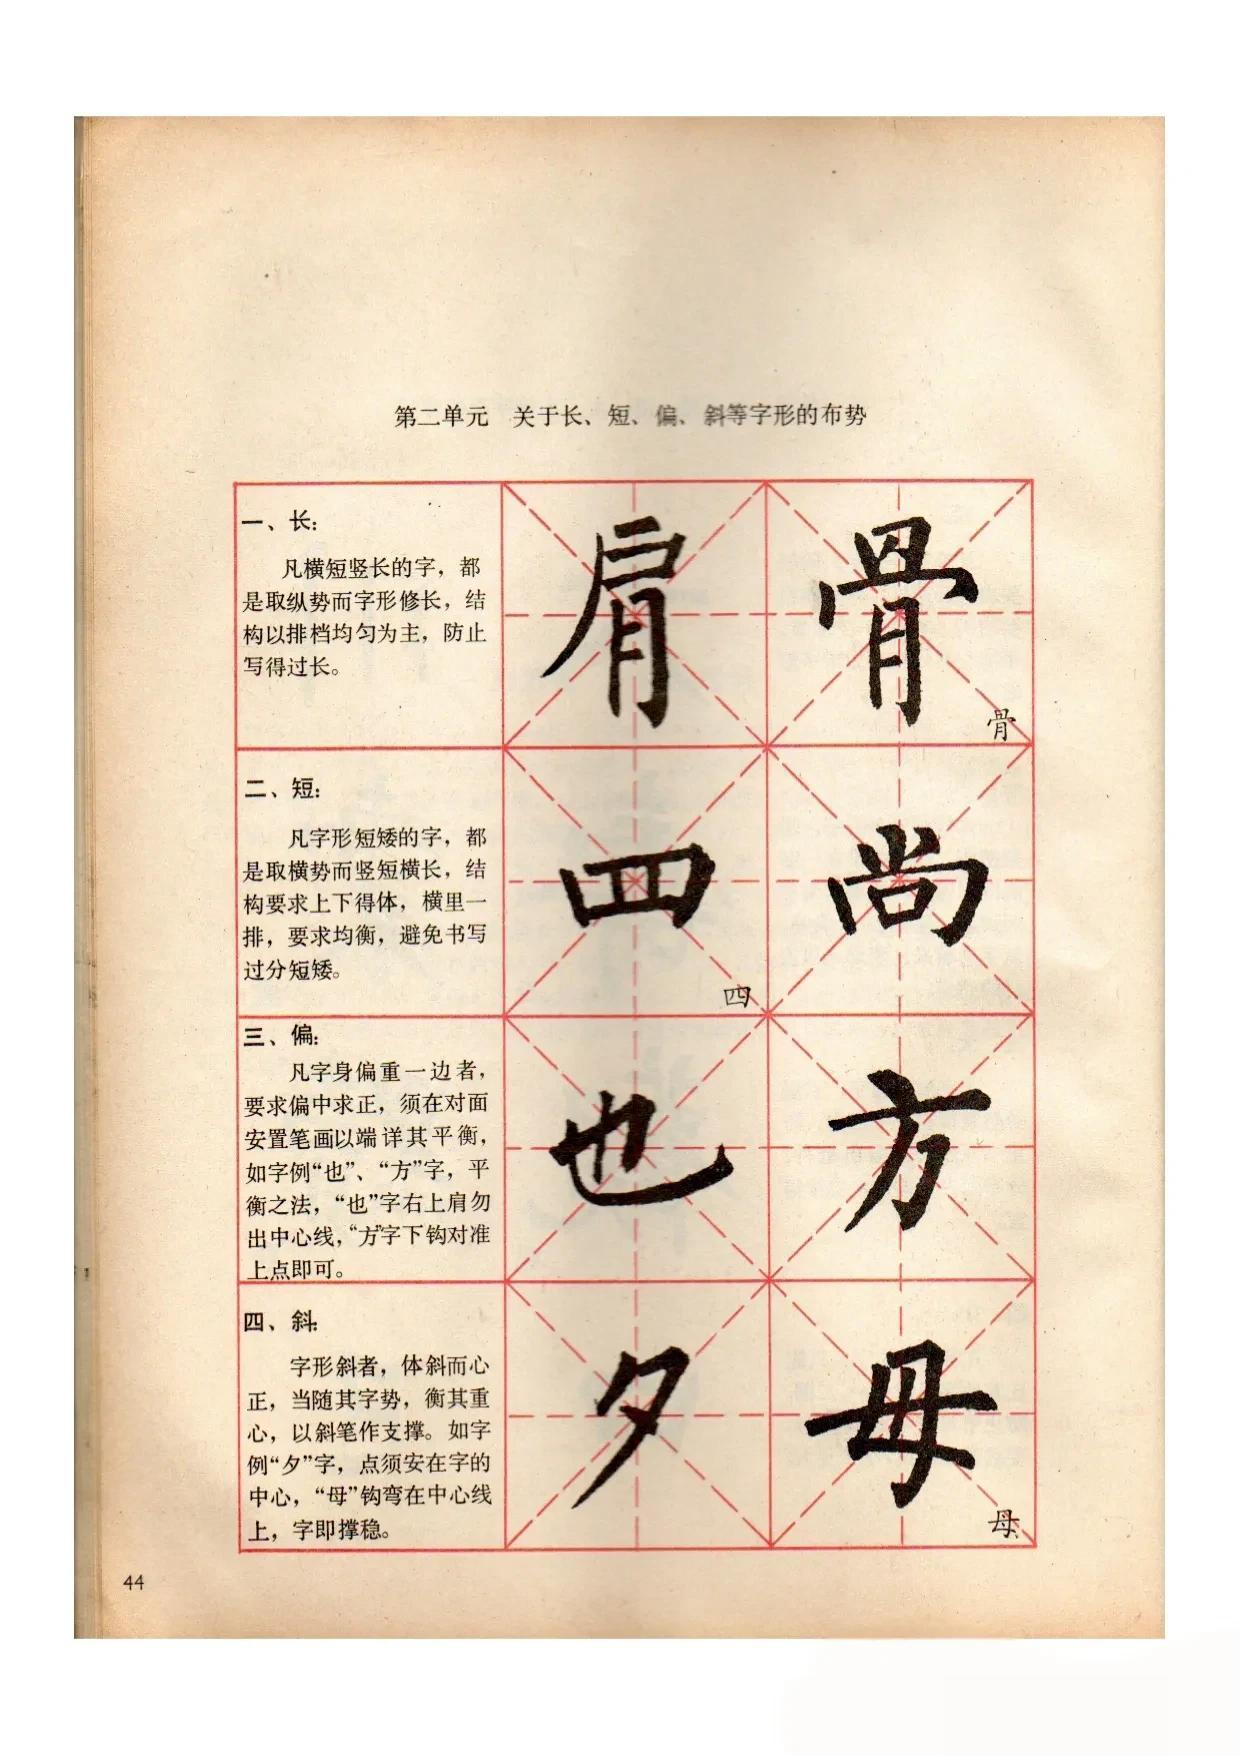 第二单元 关于长、短、偏、斜等字形的布势
一、长：
凡横短竖长的字，都
是取纵势而字形修长，结
构以排档均匀为主，防止
写得过长。
肩
骨
骨
二、短：
凡字形短矮的字，都
是取横势而竖短横长，结
构要求上下得体，横里一
排，要求均衡，避免书写
过分短矮。
四
四
尚
三、偏：
凡字身偏重一边者，
要求偏中求正，须在对面
安置笔画以端详其平衡，
如字例“也”、“方”字，平
衡之法，“也”字右上肩勿
出中心线，“方”字下钩对准
上点即可。
也
方
四、斜：
字形斜者，体斜而心
正，当随其字势，衡其重
心，以斜笔作支撑。如字
例“夕”字，点须安在字的
中心，“母”钩弯在中心线
上，字即撑稳。
夕
母
母
44